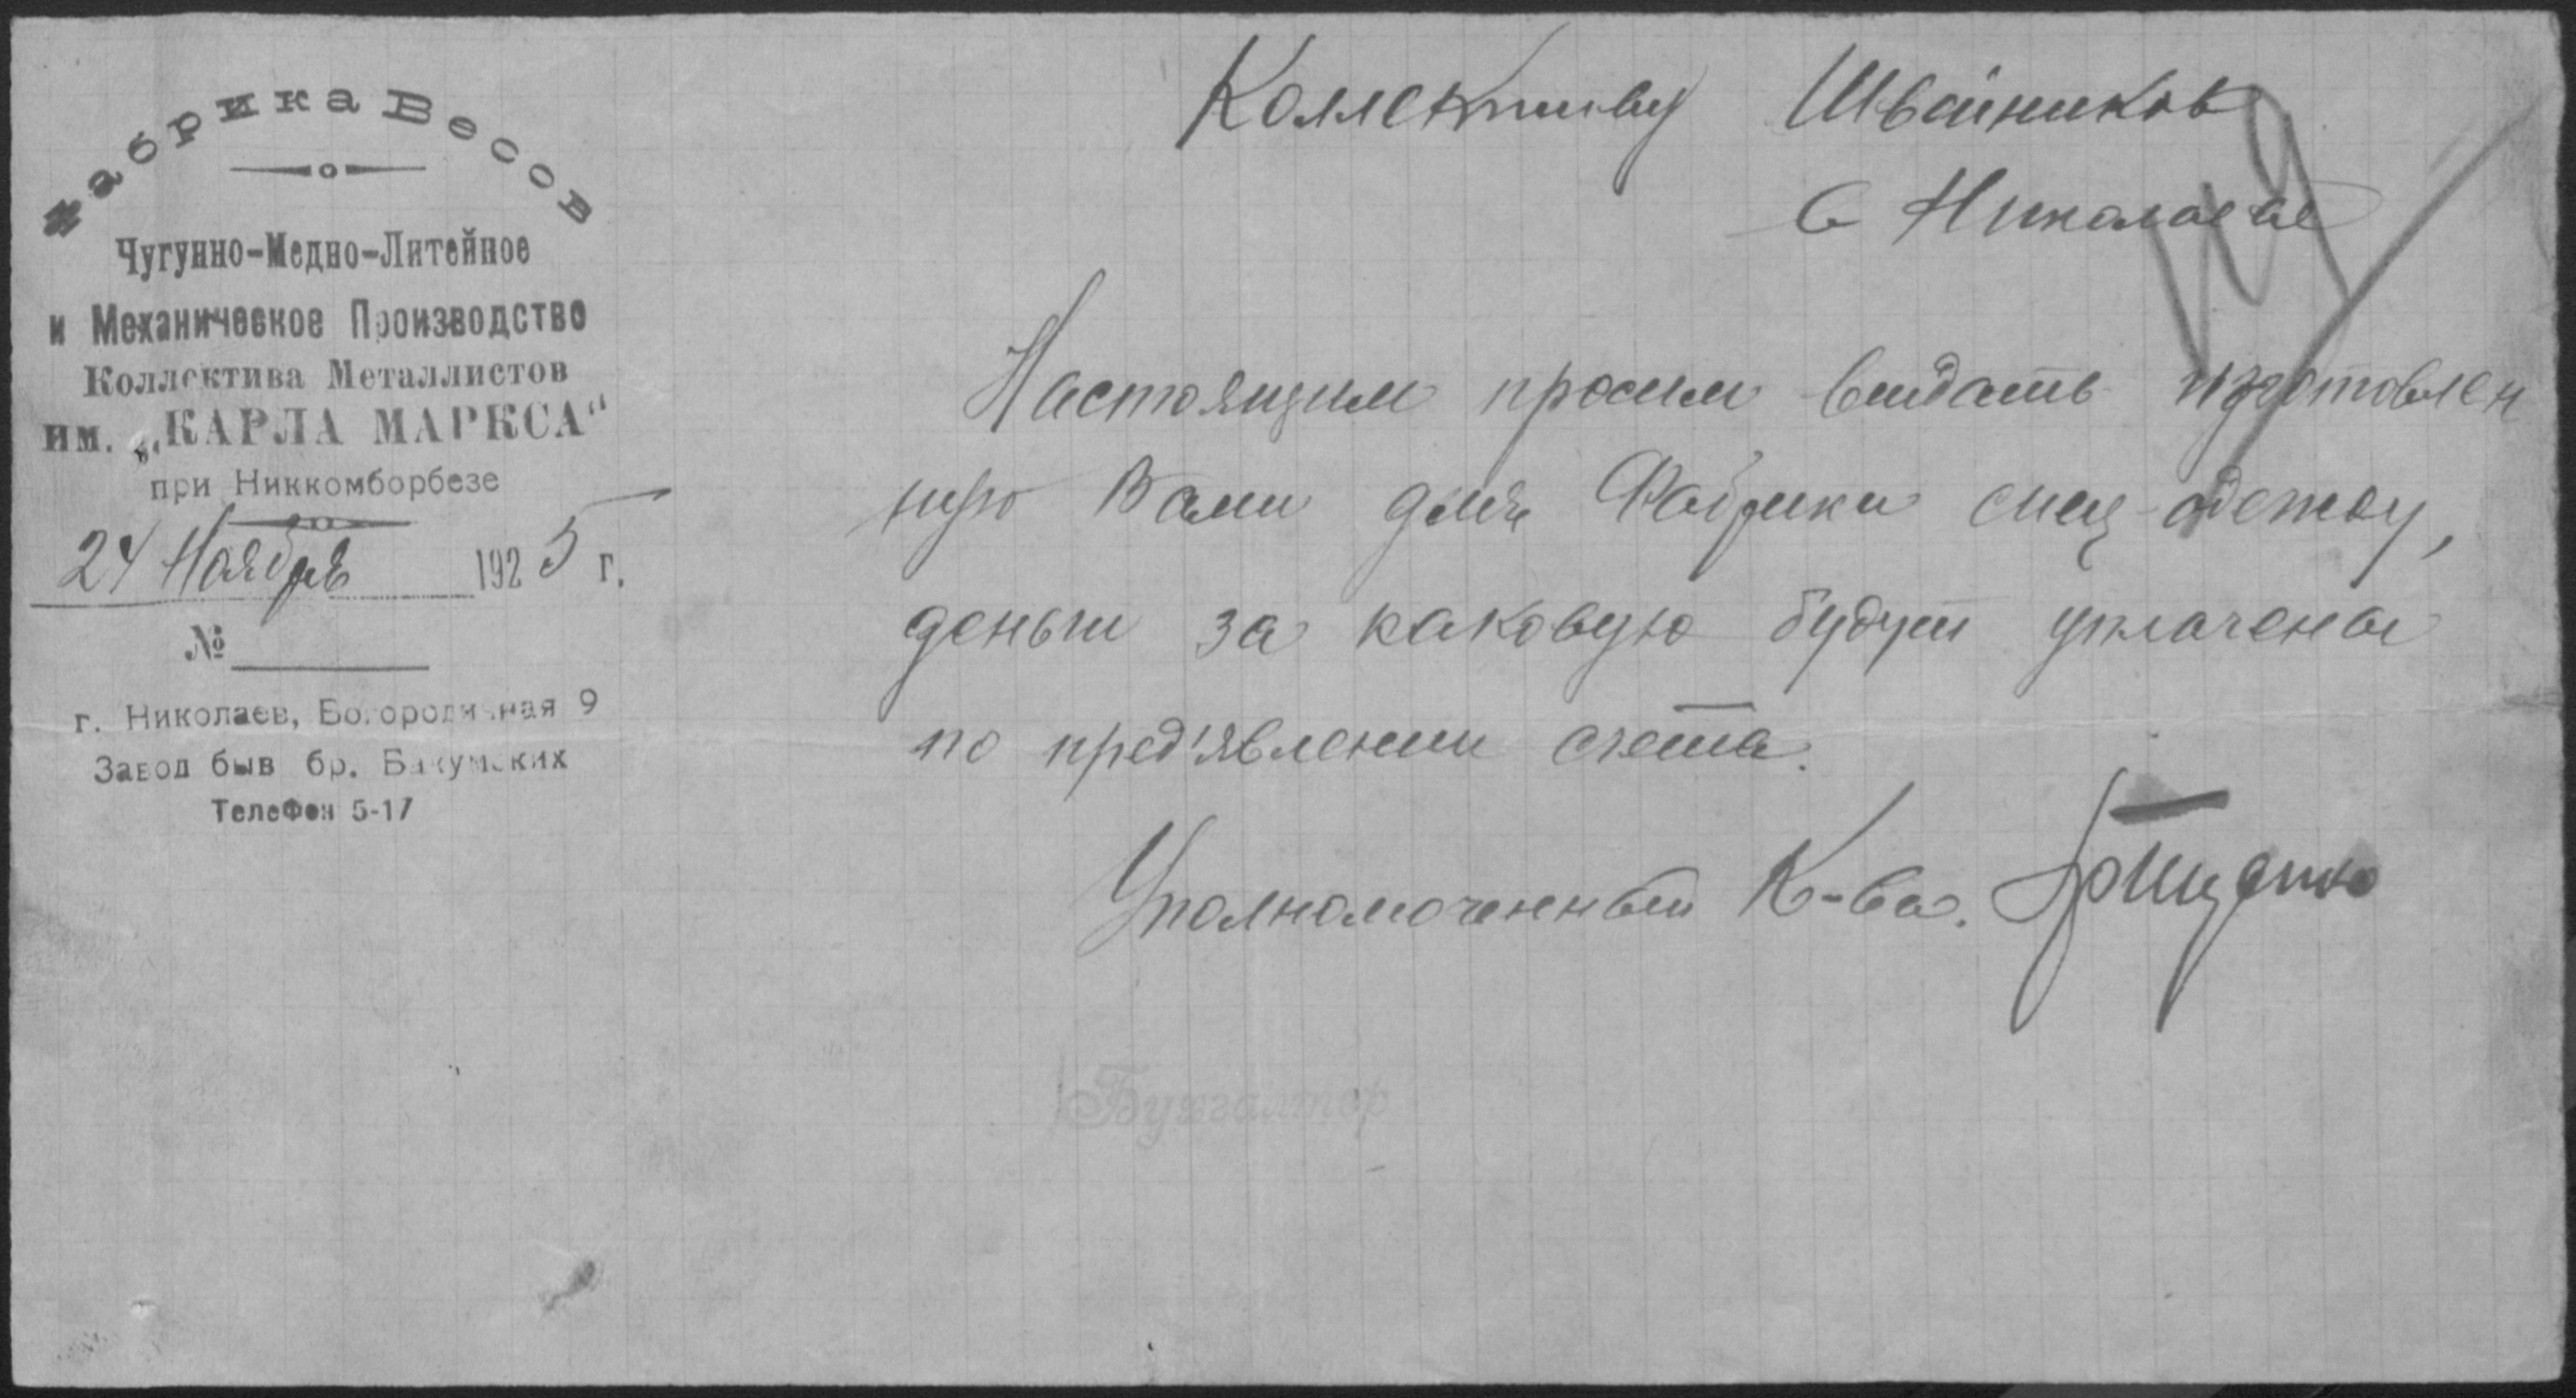 Фабрика Весов
Чугунно-Медно-Литейное
и Механическое Производство
Коллектива Металлистов
им. „КАРЛА МАРКСА“
при Никкомборбезе
24 Ноября 1925 г.
№
г. Николаев, Богородичная 9
Завод быв бр. Бакумских
Телефон 5-17
Коллективу Швейников
в Николаеве
Настоящим просим выдать изготовлен
ную Вами для Фабрики спец-одежду,
деньги за каковую будут уплачены
по пред'явлении счета.
Уполномоченный К-ва.
Бухгалтер